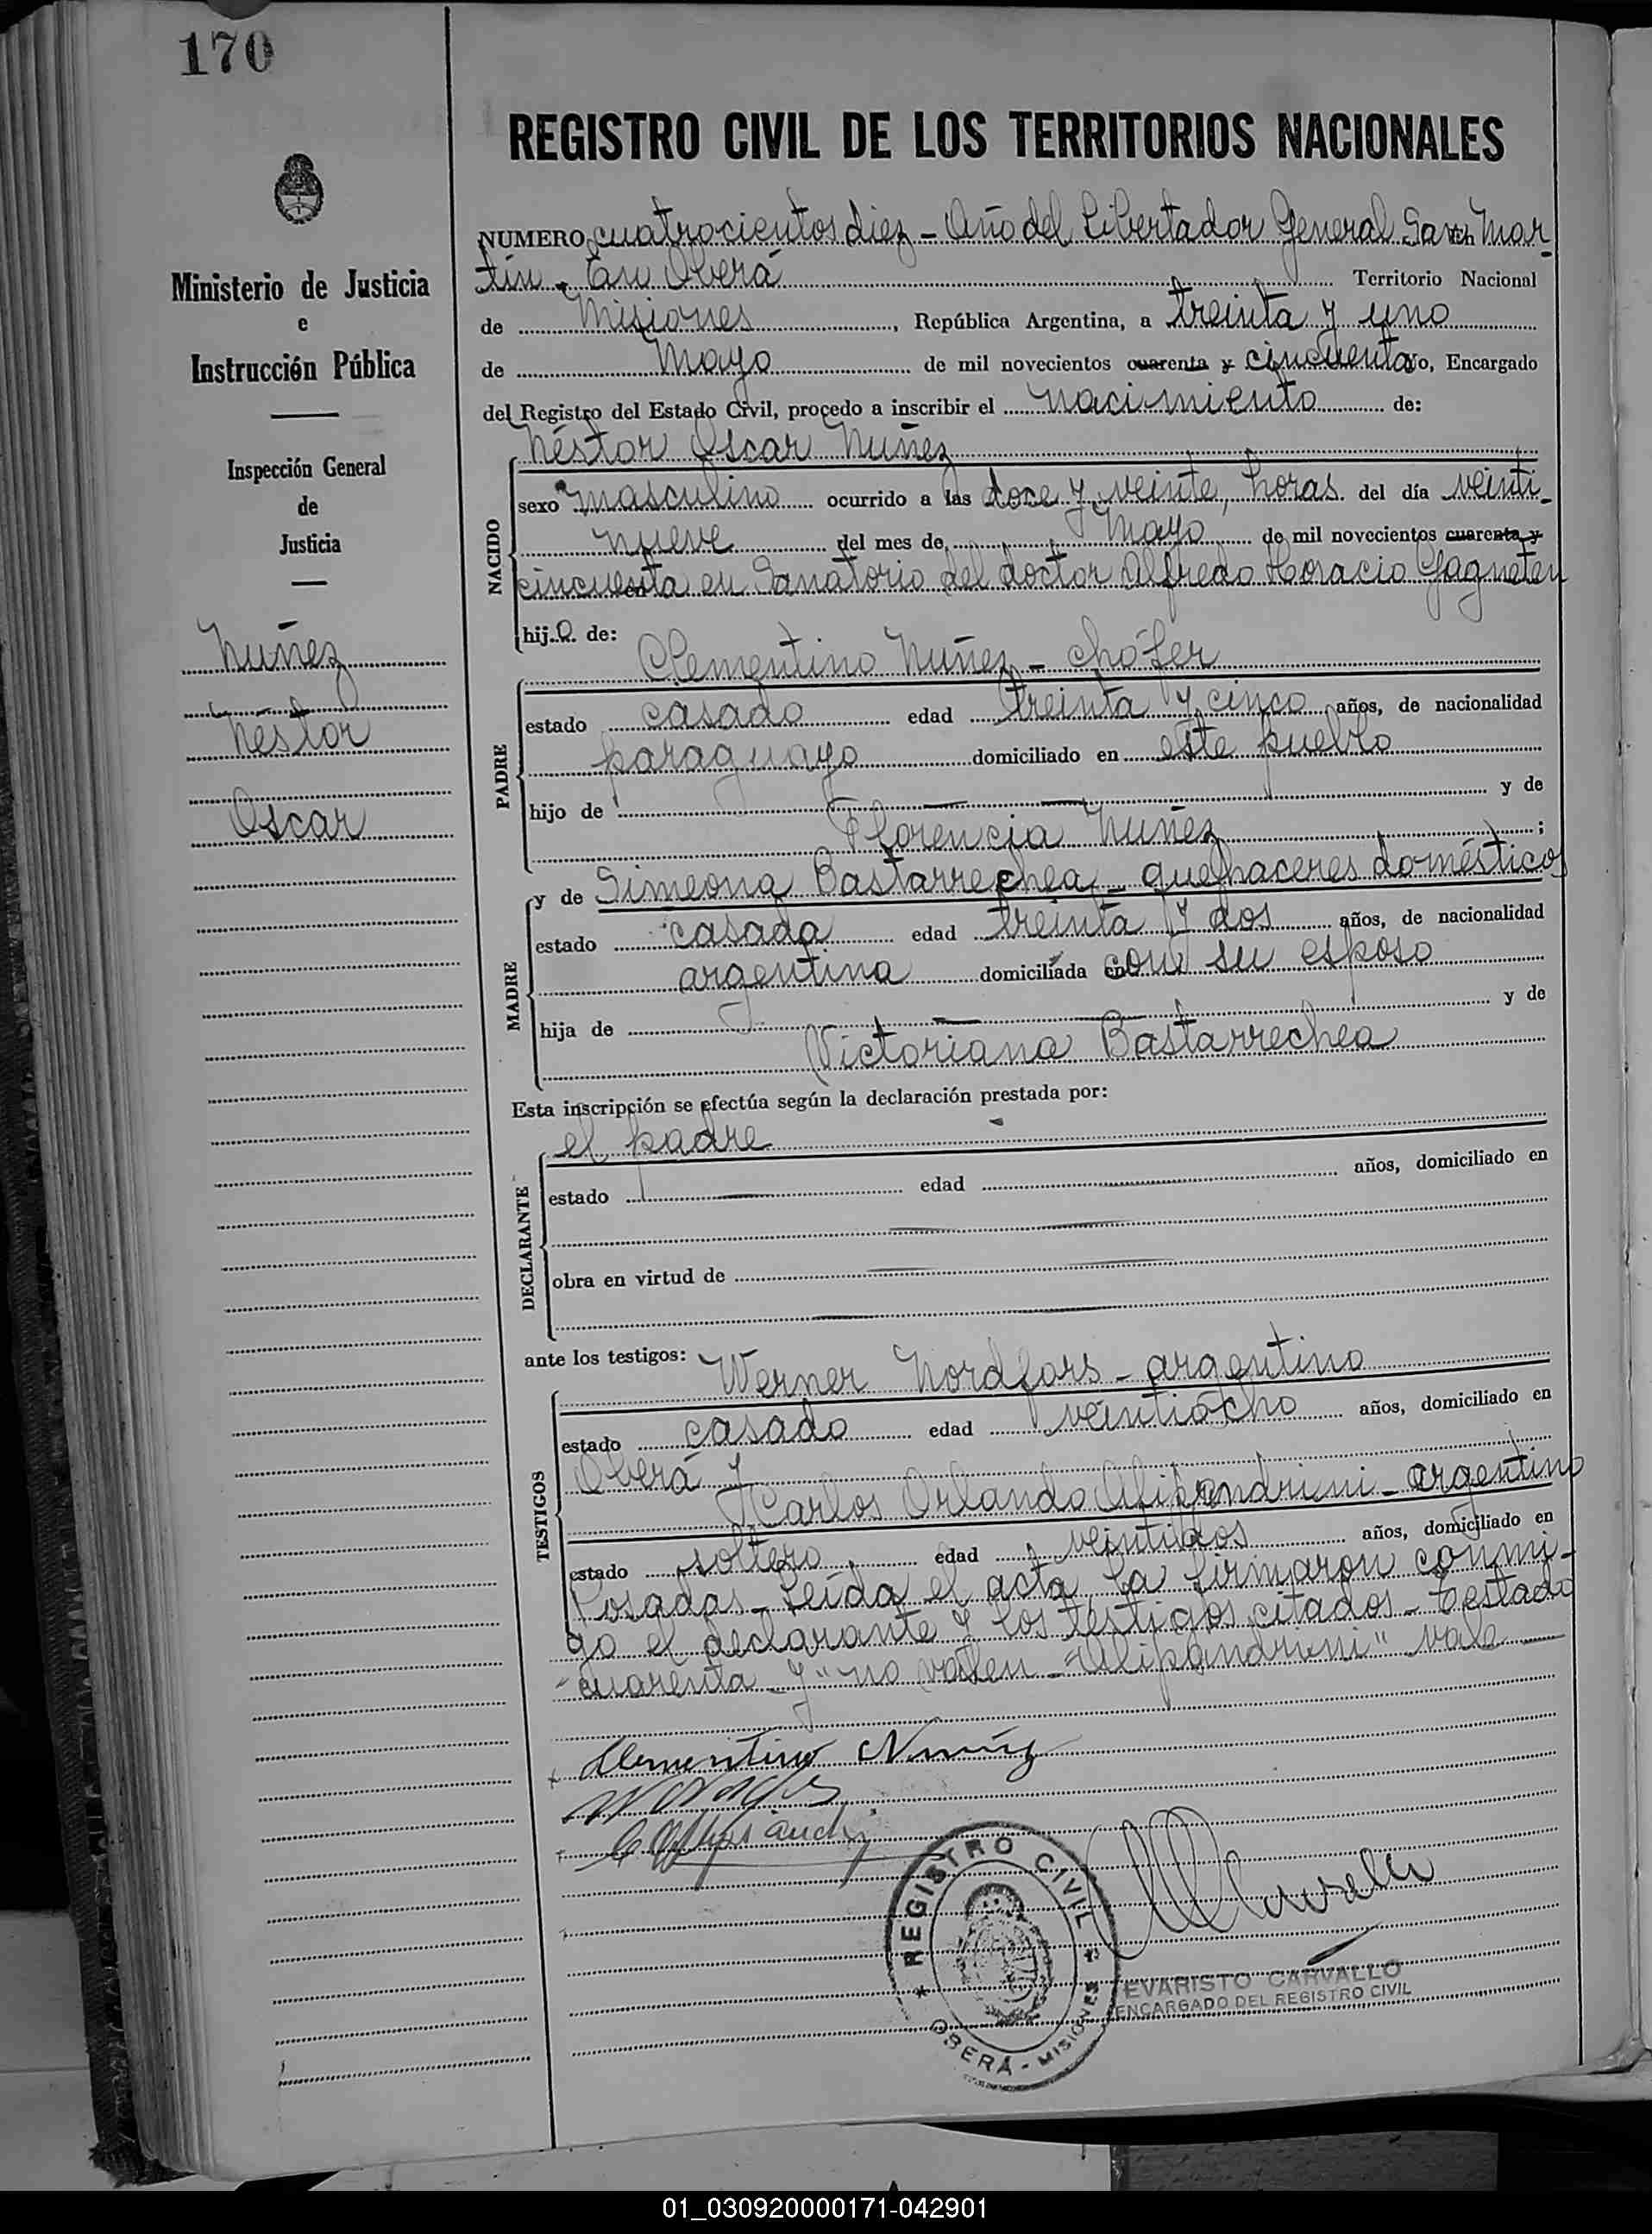 170
REGISTRO CIVIL DE LOS TERRITORIOS NACIONALES
Ministerio de Justicia
e
Instrucción Pública
Inspección General
de
Justicia
Nuñez
Néstor
Oscar
NUMERO cuatrocientos diez - Año del Libertador General San Mar-
tín - En Oberá Territorio Nacional
de Misiones, República Argentina, a treinta y uno
de Mayo de mil novecientos cuarenta y cincuenta yo, Encargado
del Registro del Estado Civil, procedo a inscribir el nacimiento de:
Néstor Oscar Nuñez
NACIDO
sexo masculino ocurrido a las doce y veinte, horas del día veinti-
nueve del mes de Mayo de mil novecientos cuarenta y
cincuenta en Sanatorio del doctor Alfredo Horacio Gagneten
hijo de:
Clementino Nuñez - chófer
PADRE
estado casado edad treinta y cinco años, de nacionalidad
paraguayo domiciliado en este pueblo
hijo de y de
Florencia Nuñez ;
y de Simeona Bastarrechea - quehaceres domésticos
MADRE
estado casada edad treinta y dos años, de nacionalidad
argentina domiciliada con su esposo
hija de y de
Victoriana Bastarrechea
Esta inscripción se efectúa según la declaración prestada por:
el padre
DECLARANTE
estado edad años, domiciliado en
obra en virtud de
ante los testigos: Werner Nordfors - argentino
TESTIGOS
estado casado edad veintiocho años, domiciliado en
Oberá y
Carlos Orlando Alipandrini - argentino
estado soltero edad veintidos años, domiciliado en
Posadas - Leída el acta la firmaron conmi-
go el declarante y los testigos citados - Testado
"cuarenta y" no valen - "Alipandrini" vale
Clementino Nuñez
REGISTRO CIVIL
OBERÁ - MISIONES
EVARISTO CARVALLO
ENCARGADO DEL REGISTRO CIVIL
01_030920000171-042901